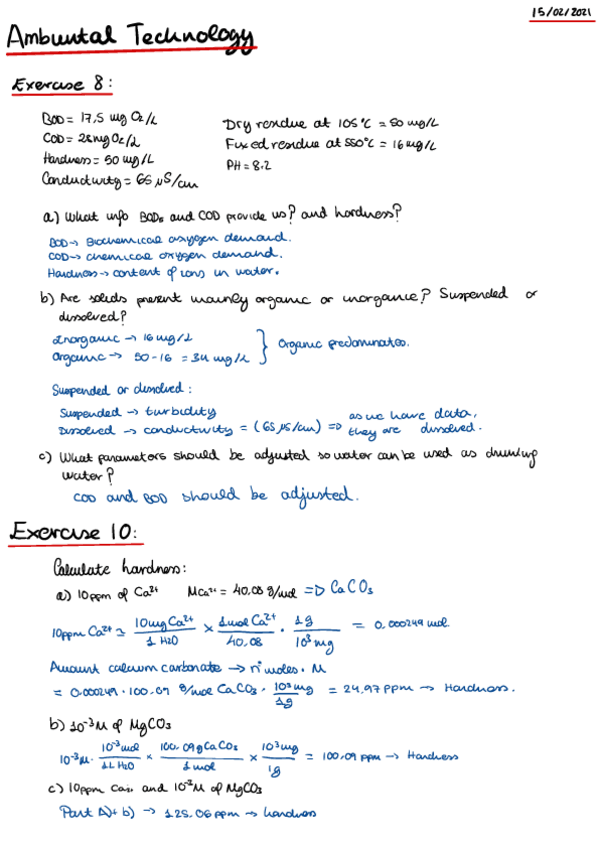 15/02/2021
Ambiental Technology
Exercise 8:
BOD = 17,5 mg O₂/L
COD = 28 mg O₂/L
Hardness = 50 mg/L
Conductivity = 65 µS/cm
Dry residue at 105°C = 50 mg/L
Fixed residue at 550°C = 16 mg/L
PH = 8.2
a) What info BOD₅ and COD provide us? and hardness?
BOD → Biochemical oxygen demand.
COD → chemical oxygen demand.
Hardness → content of ions in water.
b) Are solids present mainly organic or inorganic? Suspended or
dissolved?
Inorganic → 16 mg/L
organic → 50-16 = 34 mg/L } Organic predominates.
Suspended or dissolved:
Suspended → turbidity
Dissolved → conductivity = (65 µS/cm) => as we have data, they are dissolved.
c) What parameters should be adjusted so water can be used as drinking
water?
COD and BOD should be adjusted.
Exercise 10:
Calculate hardness:
a) 10ppm of Ca²⁺ MCa²⁺ = 40,08 g/mol => CaCO₃
10ppm Ca²⁺ = 10mg Ca²⁺/1 H2O × 1mol Ca²⁺/40,08 · 1g/10³ mg = 0,000249 mol.
Amount calcium carbonate → nº moles · M
= 0,000249 · 100,09 g/mol CaCO₃ · 10³ mg/1g = 24,97 ppm → Hardness.
b) 10⁻³M of MgCO₃
10⁻³M · 10⁻³ mol/1L H2O × 100,09g CaCO₃/1mol × 10³ mg/1g = 100,09 ppm → Hardness
c) 10ppm and 10⁻³M of MgCO₃
Part A) + b) → 125,06 ppm → hardness